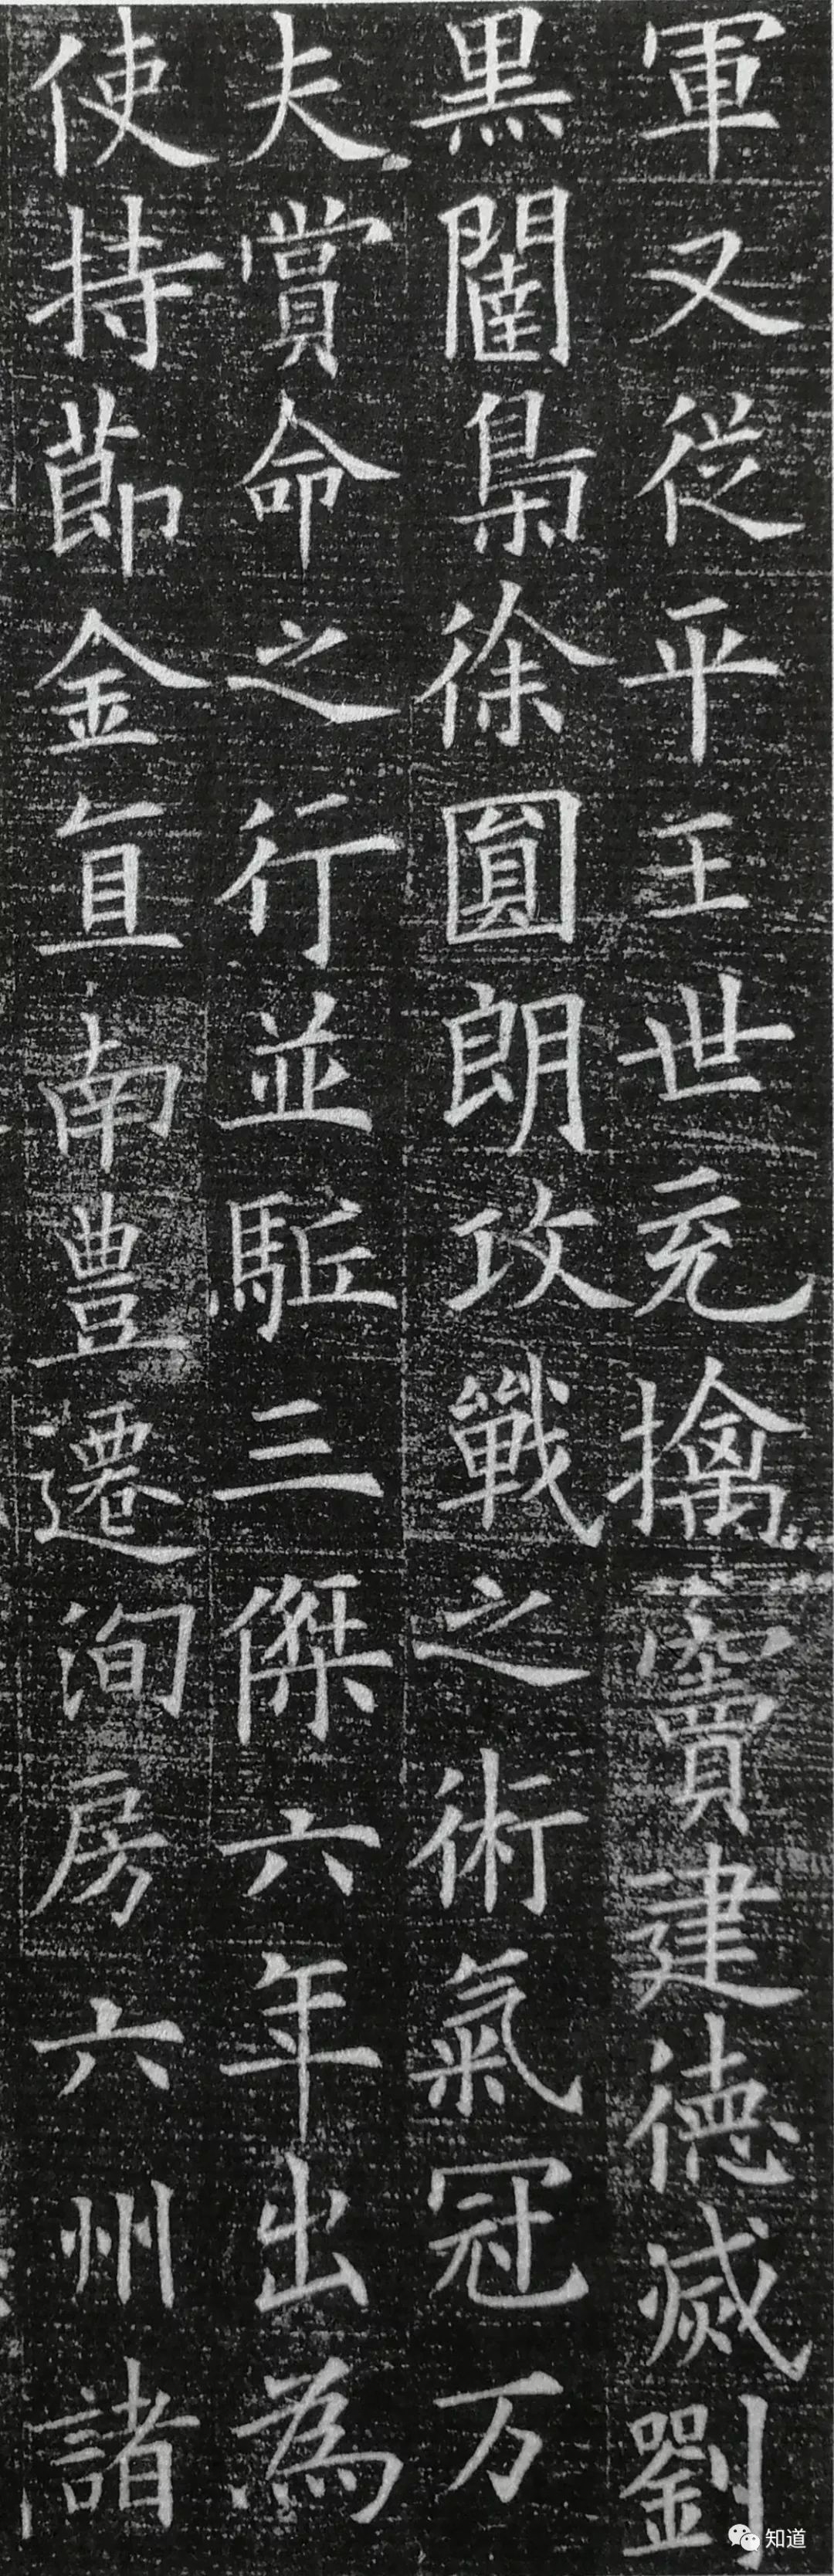 軍又從平王世充擒竇建德滅劉
黑闥梟徐圓朗攻戰之術氣冠万
夫賞命之行並駈三傑六年出為
使持節金直南豊遷洵房六州諸
知道